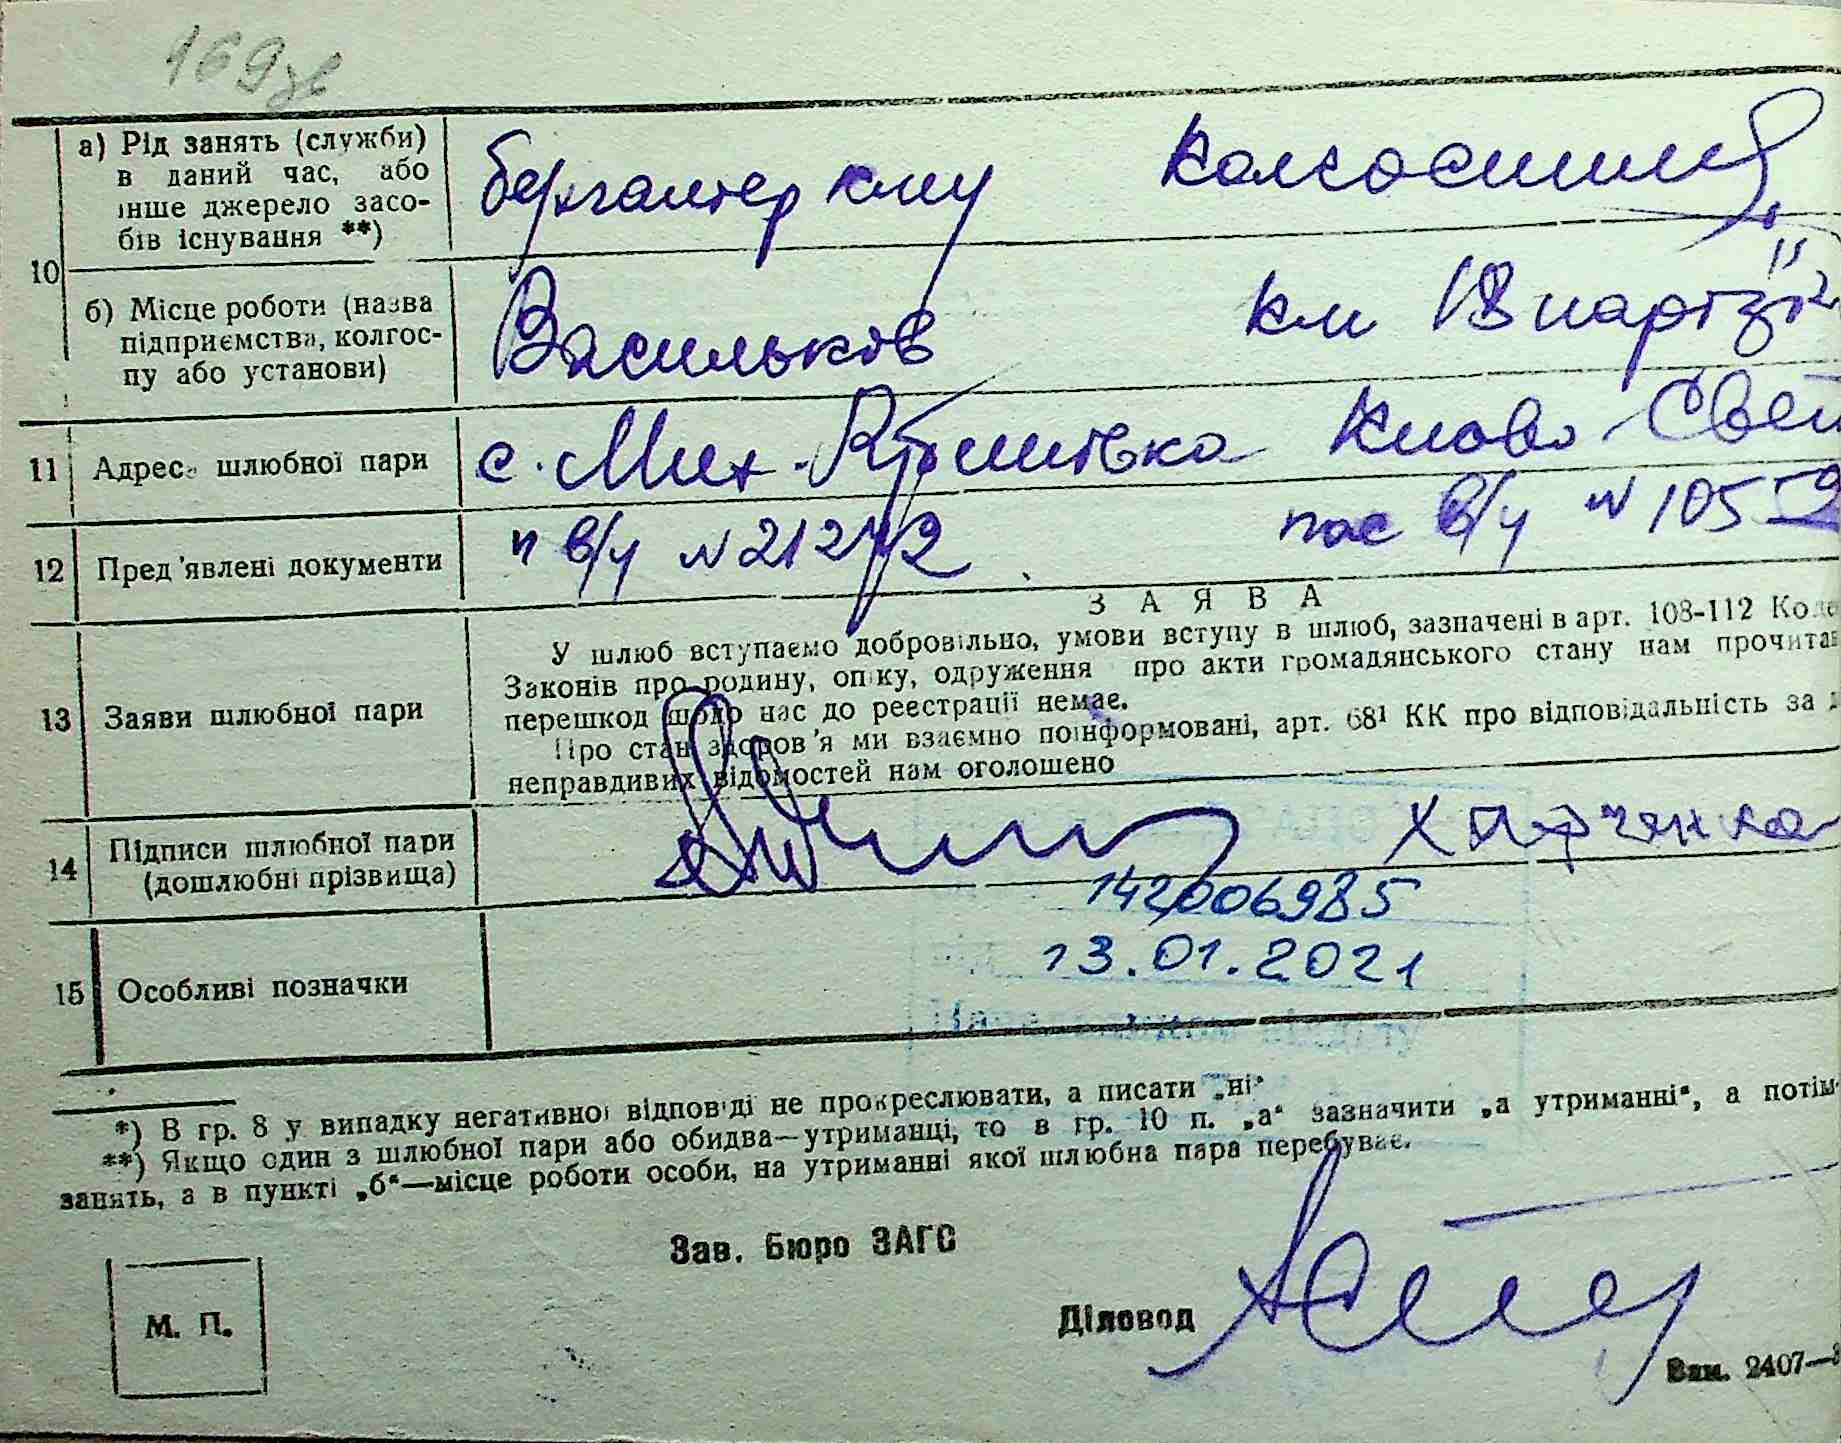 169зв
а) Рід занять (служби)
в даний час, або
інше джерело засо-
бів існування **)
бухгалтер
10
б) Місце роботи (назва
підприємства, колгос-
пу або установи)
Васильков
11 Адреса шлюбної пари
с. Мих. Рубежівка Києво Свят
12 Пред'явлені документи
п в/ч № 21272 пас в/ч № 10559
ЗАЯВА
13 Заяви шлюбної пари
У шлюб вступаємо добровільно, умови вступу в шлюб, зазначені в арт. 108-112 Коде
Законів про родину, опіку, одруження про акти громадянського стану нам прочита
перешкод щодо нас до реєстрації немає.
Про стан здоров'я ми взаємно поінформовані, арт. 68¹ КК про відповідальність за
неправдивих відомостей нам оголошено
14 Підписи шлюбної пари
(дошлюбні прізвища)
Харченко
142006985
15 Особливі позначки
13.01.2021
*) В гр. 8 у випадку негативної відповіді не прокреслювати, а писати „ні“
**) Якщо один з шлюбної пари або обидва—утриманці, то в гр. 10 п. „а“ зазначити „а утриманні“, а потім
занять, а в пункті „б“—місце роботи особи, на утриманні якої шлюбна пара перебуває.
Зав. Бюро ЗАГС
М. П.
Діловод
Зам. 2407—